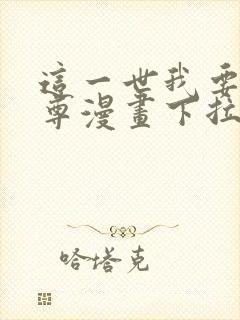 這一世我要
尊漫畫下拉
哈塔克